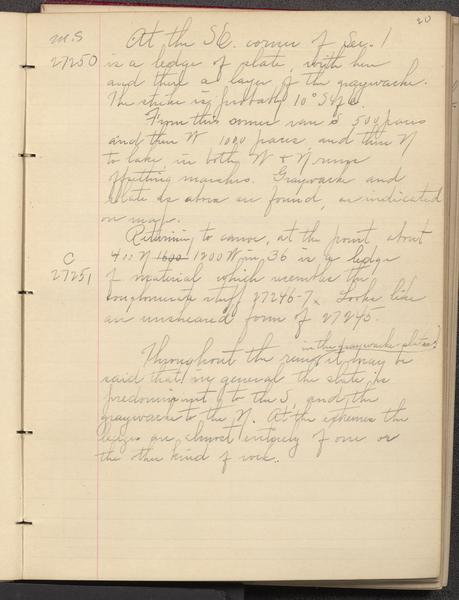 20
M.S At the SE. corner of Sec. 1
27250 is a ledge of slate, with here
and there a layer of the graywacke.
The strike is probably 10° S of E.
From this corner ran S 500 paces
and then W 1000 paces, and then N
to lake, in both W & N runs
offsetting marshes. Graywacke and
slate as above are found, as indicated
on map.
Returning to canoe, at the point, about
400 N 1600 1200 W in 36 is a ledge
C of material which resembles the
27251 conglomerate stuff 27246-7. Looks like
an unsheared form of 27245.
in the graywacke slates
Throughout the runs it may be
said that in general the slate is
predominant to the S, and the
graywacke to the N. At the extremes the
ledges are almost entirely of one or
the other kind of rock.